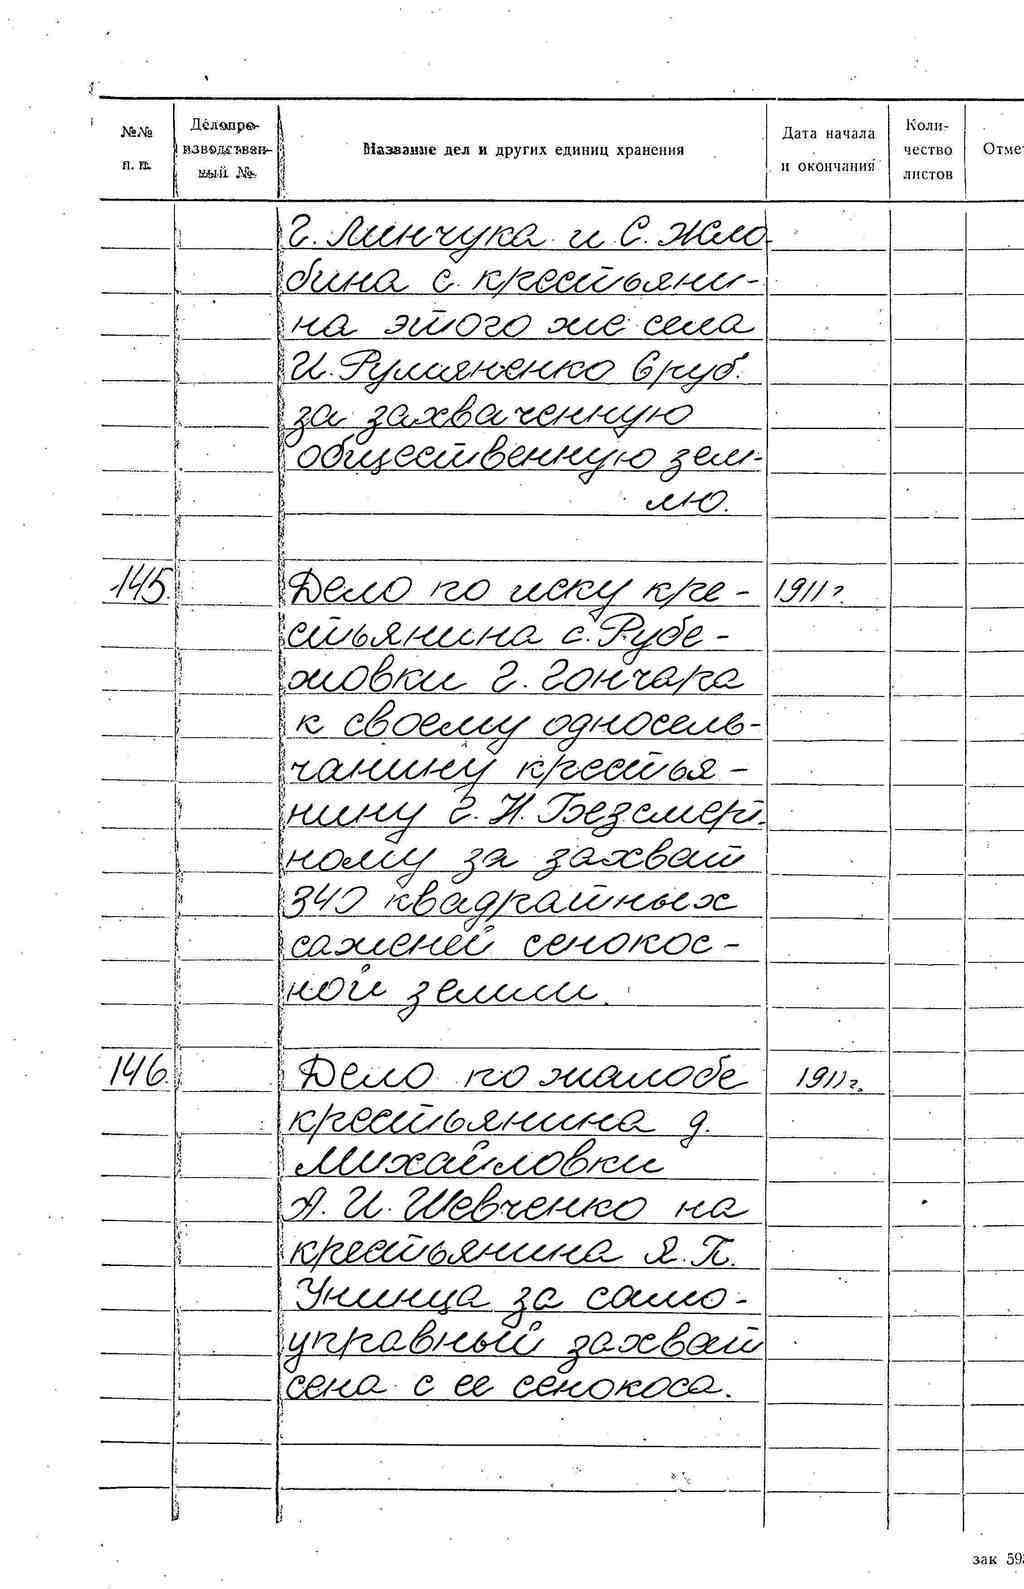 №№ п. п.
Делопроизводственный №
Название дел и других единиц хранения
Дата начала и окончания
Количество листов
Отме
Г. Линчука и С. Жло
бина с крестьяни-
на этого же села
И. Румяненко 6 руб.
за захваченную
общественную зем-
лю.
145. Дело по иску кре- 1911 г.
стьянина с. Рубе-
жовки Г. Гончара
к своему односель-
чанину крестья-
нину г. И. Безсмерт-
ному за захват
340 квадратных
саженей сенокос-
ной земли.
146. Дело по жалобе 1911 г.
крестьянина д.
Михайловки
А. И. Шевченко на
крестьянина Я. П.
Уницца за само-
управный захват
сена с ее сенокоса.
зак 593